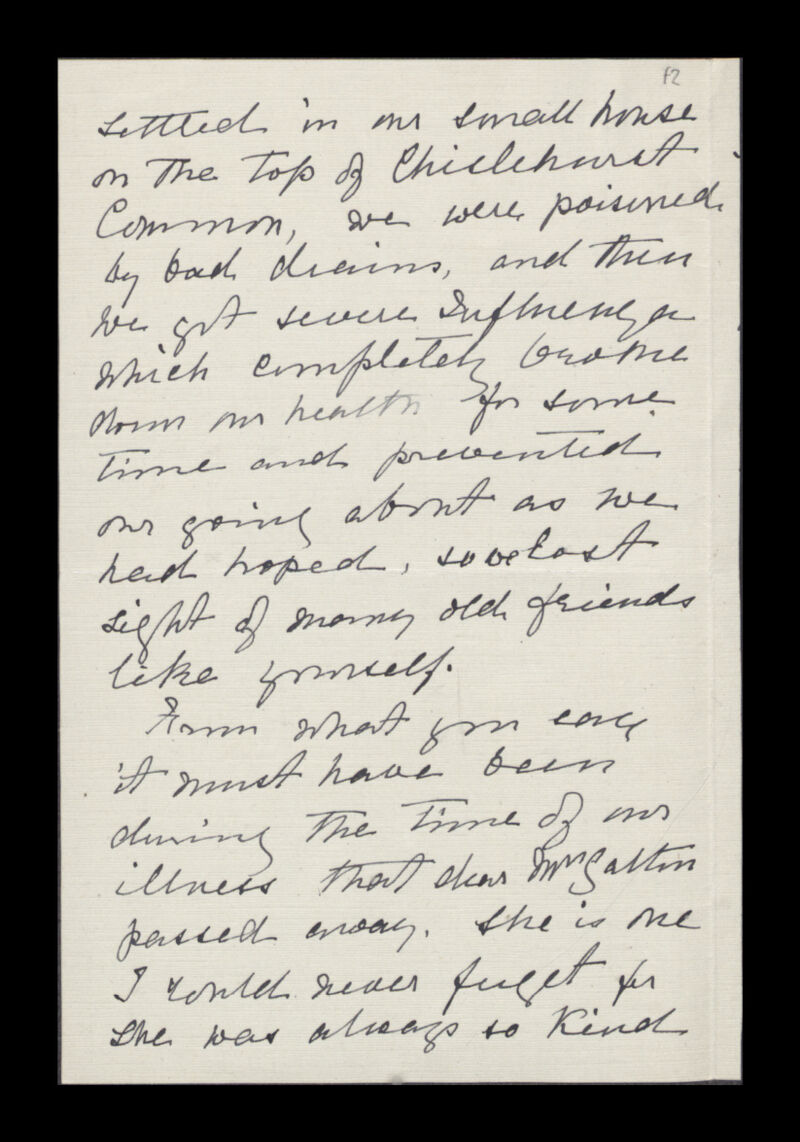 f2
settled in our small house
on the top of Chislehurst
Common, we were poisoned
by bad drains, and then
we got severe Influenza
which completely broke
down our health for some
time and prevented
our going about as we
had hoped, so we lost
sight of many old friends
like yourself.
From what you say
it must have been
during the time of our
illness that dear Mrs Galton
passed away. She is one
I could never forget for
she was always so kind